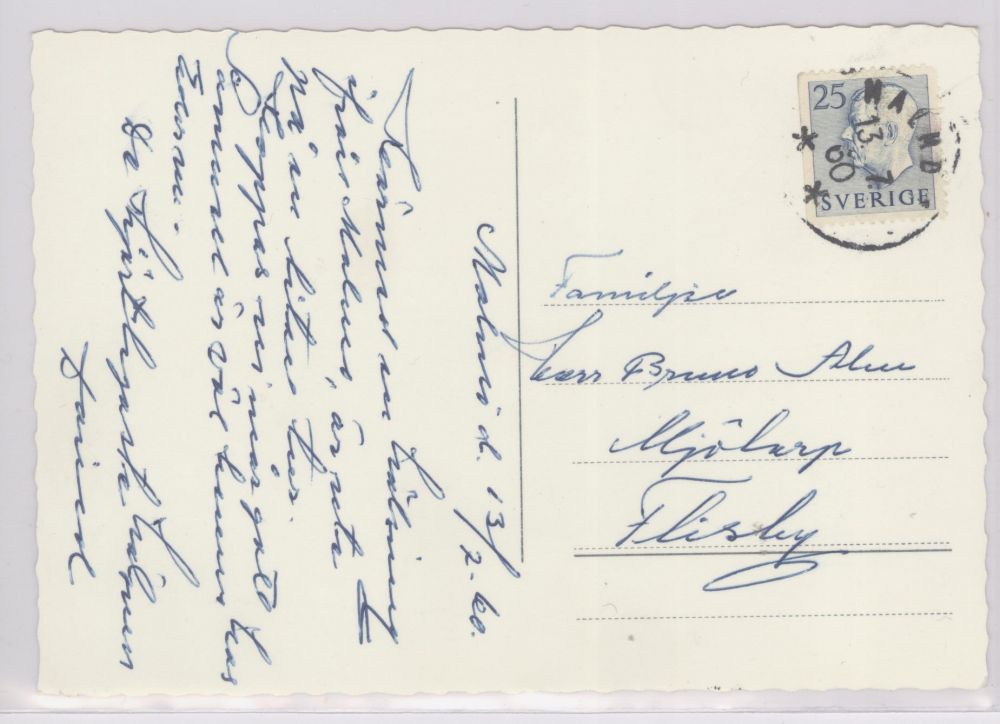 Malmö d. 13/7-60.
Närmed en hälsning
ifrån Malmö är ute
på en liten tur.
Hoppas ni mår gott
o annars är väl hemma hos
Ederna.
De hjärtligaste hälsningar
25
SVERIGE
MALMÖ
13 7
60
Familjen
Herr Bruno Alm
Mjölarp
Flisby